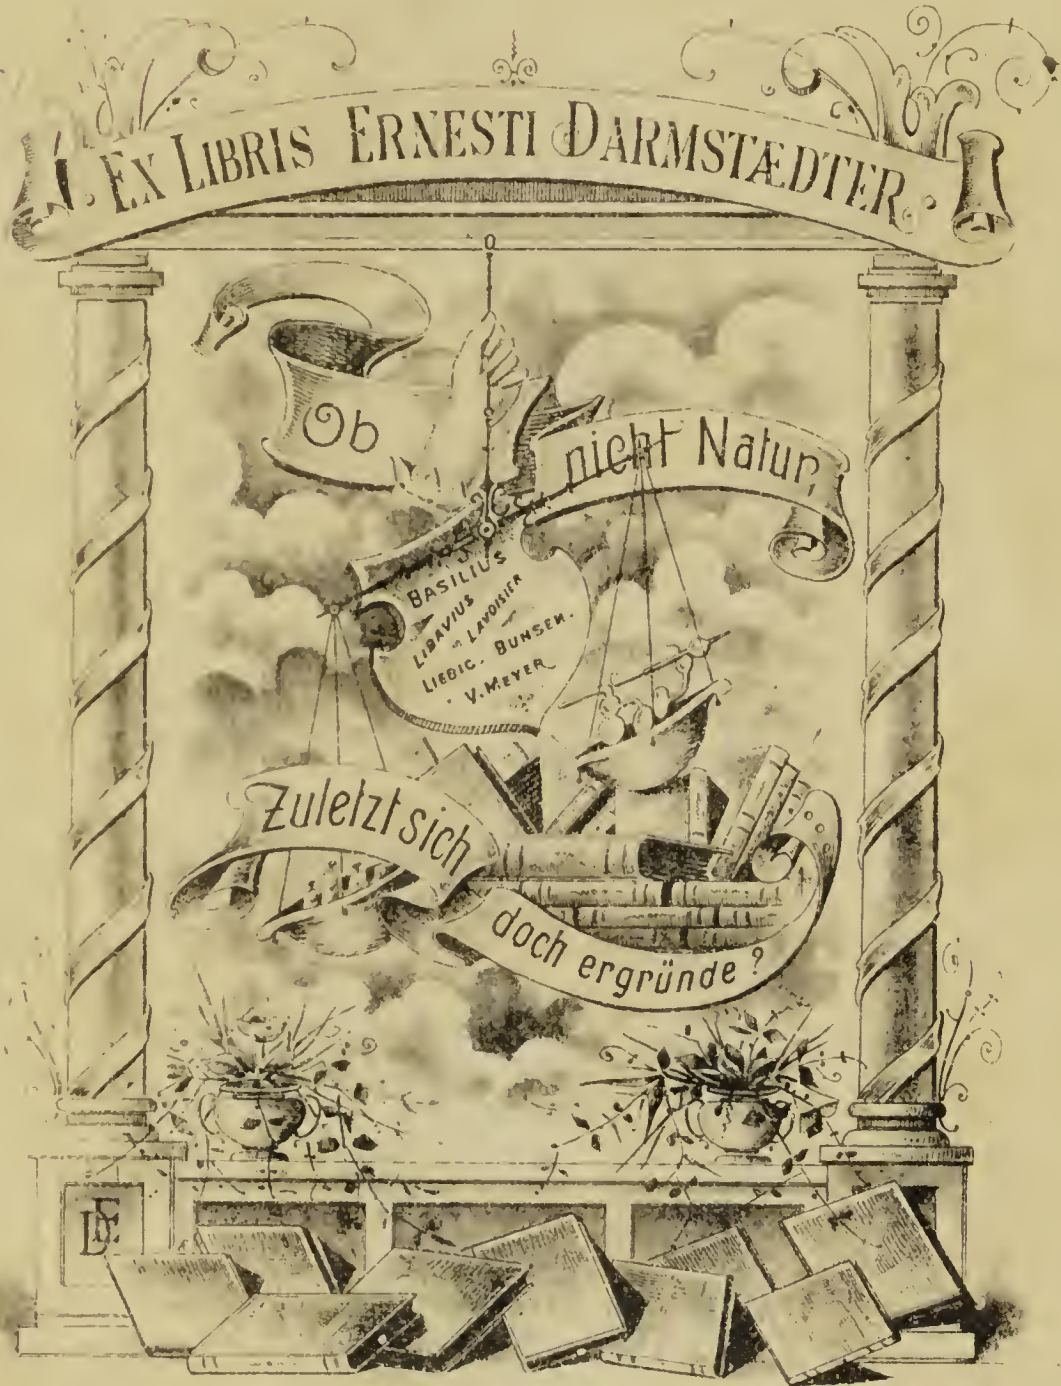 · EX LIBRIS ERNESTI DARMSTÆDTER ·
Ob
nicht Natur,
BASILIUS
LIBAVIUS
LAVOISIER
LIEBIG. BUNSEN.
V. MEYER
Zuletzt sich
doch ergründe?
DE